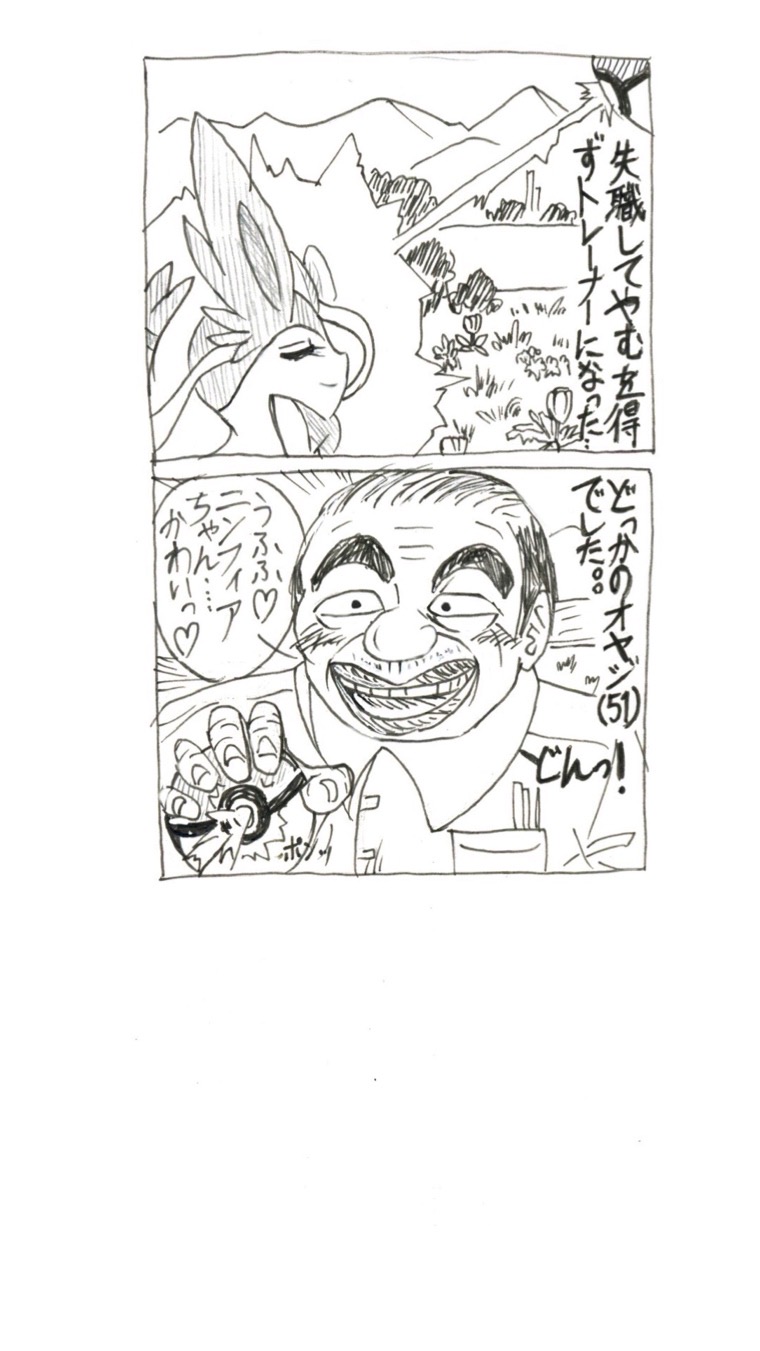 失職してやむを得
ずトレーナーになった…
どっかのオヤジ(51)
でした。。
どんっ!
うふふ♡
ニンフィア
ちゃん……
かわいっ♡
ポンッ